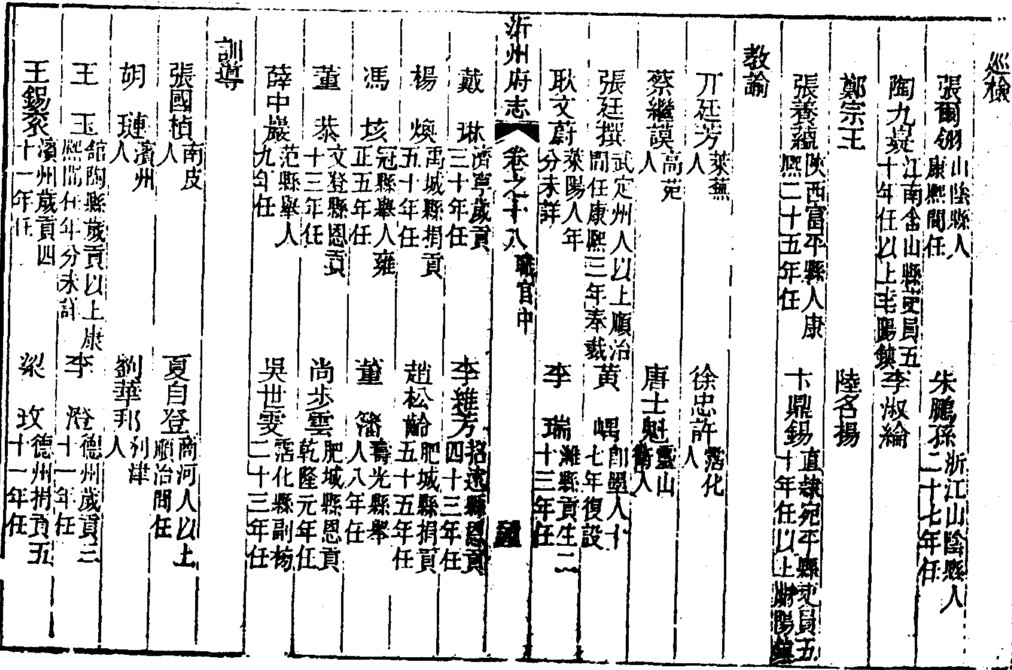 巡檢
張爾翎 山陰縣人康熙間任 朱鵬孫 浙江山陰縣人二十七年任
陶九是 江南含山縣吏員五十年任以上毛陽鎮 李淑綸
鄭宗王 陸名揚
張養蘊 陝西富平縣人康熙二十五年任 卞鼎錫 直隸宛平縣吏員五十年任以上
教諭
丌廷芳 萊蕪人 徐忠許 霑化人
蔡繼謨 高苑人 唐士魁 靈山衛人
張廷撰 武定州人以上順治間任康熙三年奉裁 黃嵎 卽墨人十七年復設
耿文蔚 萊陽人年分未詳 李瑞 濰縣貢生二十三年任
沂州府志 卷之十八 職官中
戴琳 濟寧歲貢三十年任 李維芳 招遠縣恩貢四十三年任
楊煥 禹城縣捐貢五十年任 趙松齡 肥城縣捐貢五十五年任
馮垓 冠縣舉人雍正五年任 董籓 壽光縣舉人八年任
董恭 文登縣恩貢十三年任 尚步雲 肥城縣恩貢乾隆元年任
薛中巖 范縣舉人九年任 吳世雯 霑化縣副榜二十三年任
訓導
張國楨 南皮人 夏自登 商河人以上順治間任
胡璉 濱州人 劉華邦 利津人
王玉 舘陶縣歲貢以上康熙間任年分未詳 李澄 德州歲貢三十一年任
王錫袞 濱州歲貢四十一年任 梁玫 德州捐貢五十一年任